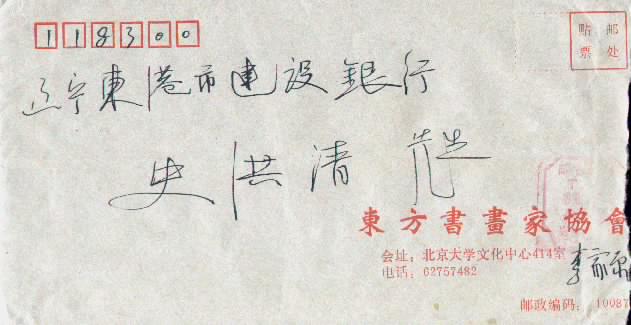 118300
贴邮
票处
辽宁東港市建设銀行
史洪清 先生
東方書畫家協會
会址：北京大学文化中心414室
电话：62757482
李
邮政编码：10087